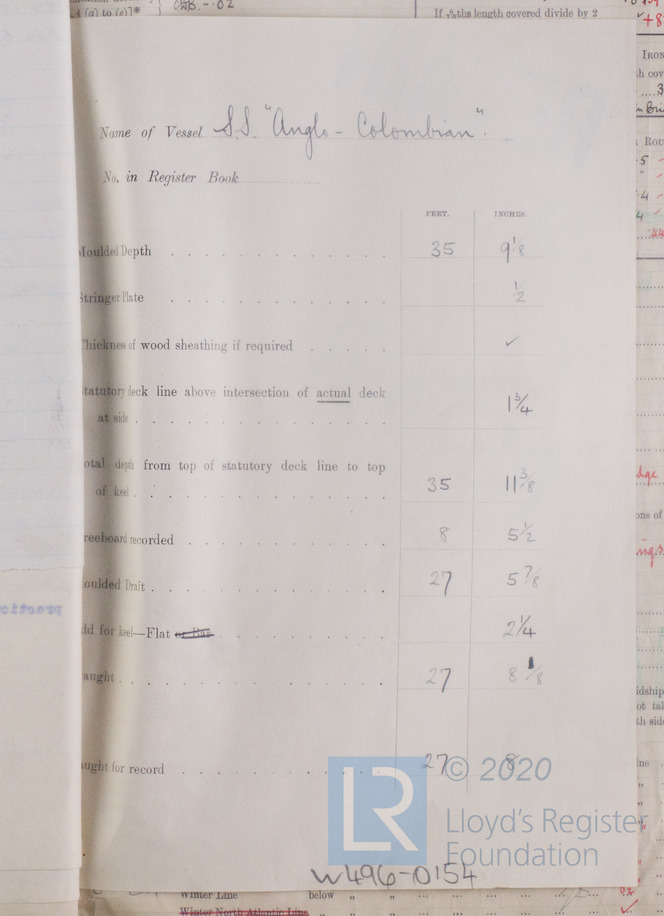 4 (a) to (e)]*
If ths length covered divide by 2
+8
IRON
Name of Vessel S.S. "Anglo - Colombian".
No. in Register Book
FEET. INCHES.
Moulded Depth 35 9 1/8
Stringer Plate 1/2
Thickness of wood sheathing if required ✓
Statutory deck line above intersection of actual deck
at side 1 3/4
Total depth from top of statutory deck line to top
of keel 35 11 3/8
Freeboard recorded 8 5 1/2
Moulded Draft 27 5 7/8
Add for keel—Flat or Bar 2 1/4
aught 27 8 1/8
aught for record 27 8
LR © 2020
Lloyd's Register
Foundation
W496-0154
Winter Line below " "
Winter North Atlantic Line " "